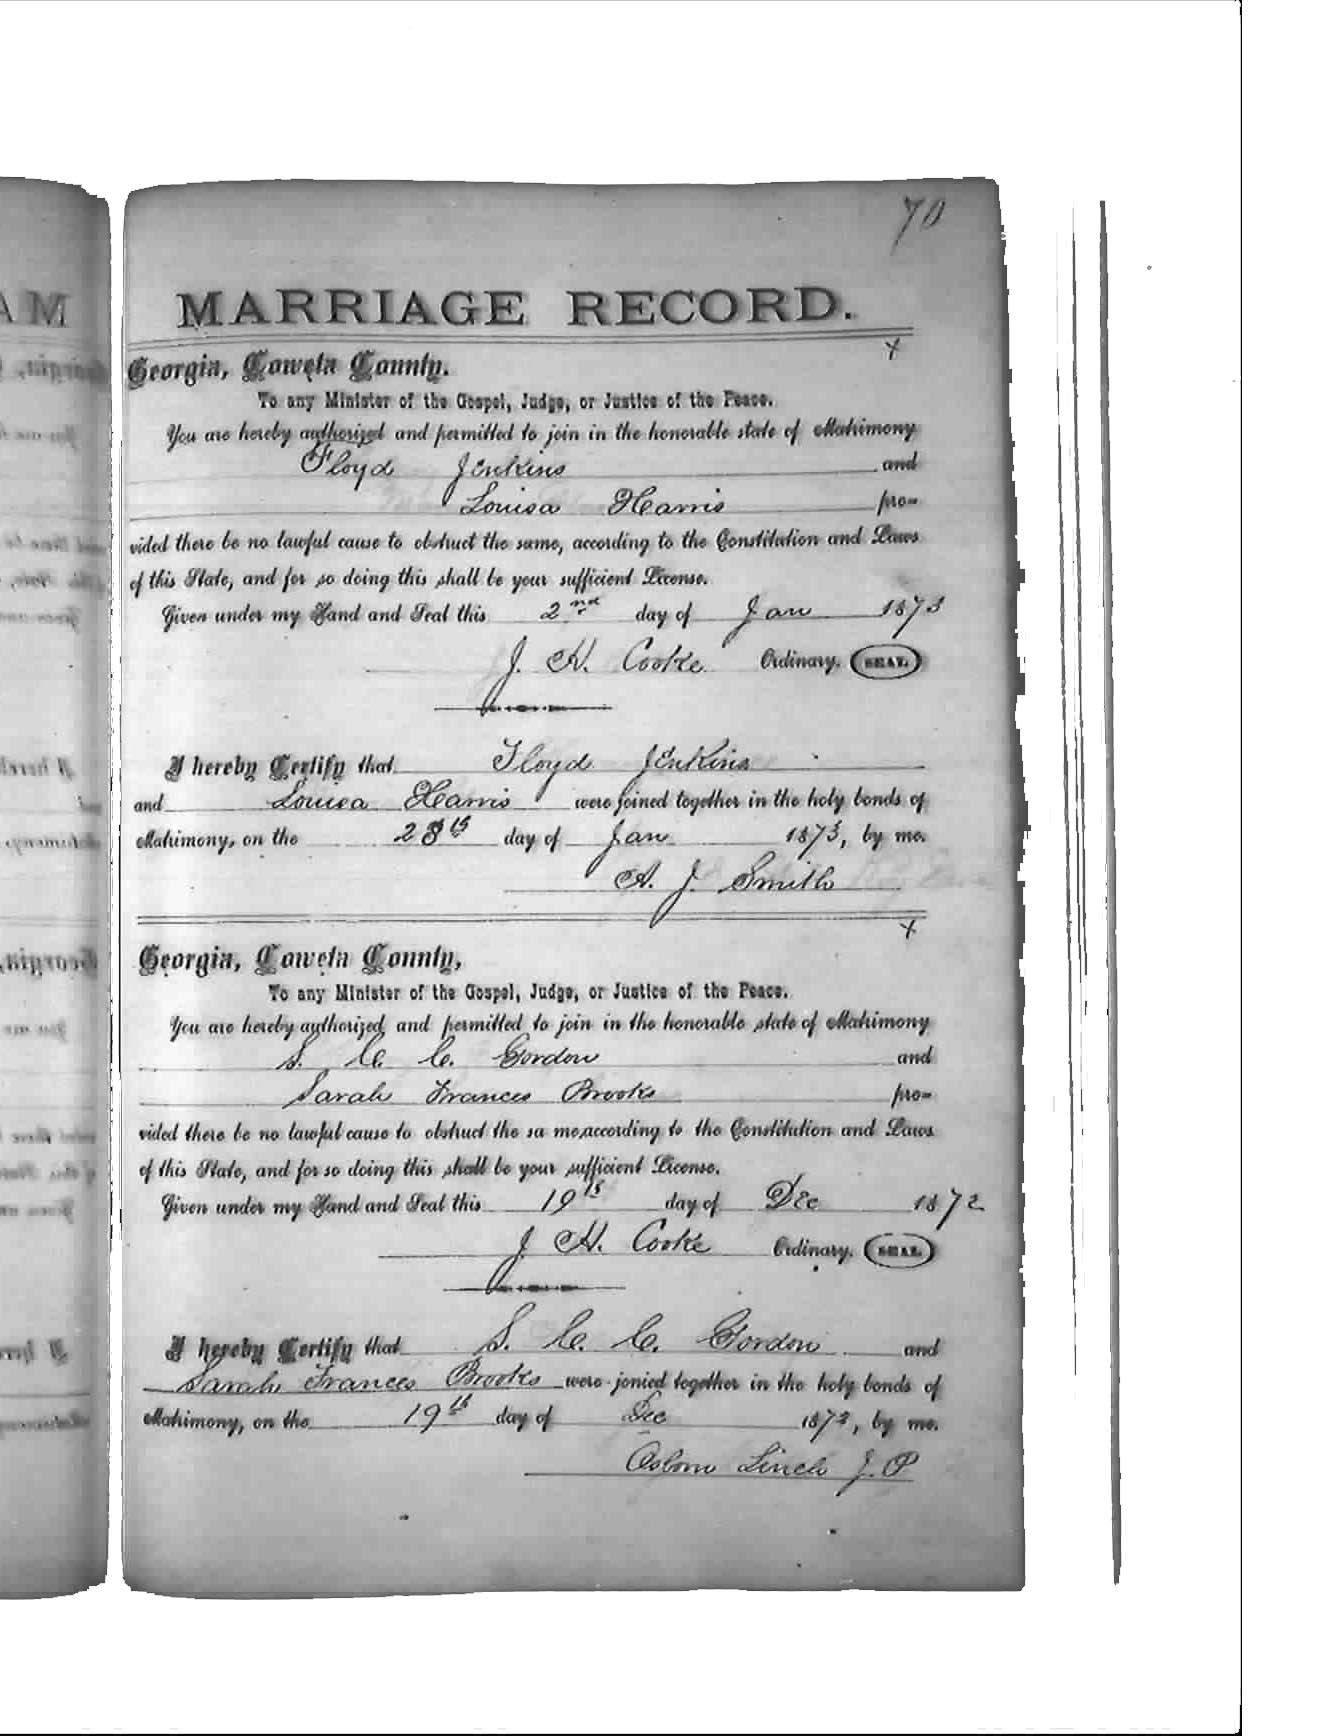 70
MARRIAGE RECORD.
x
Georgia, Coweta County.
To any Minister of the Gospel, Judge, or Justice of the Peace.
You are hereby authorized and permitted to join in the honorable state of Matrimony
Floyd Jenkins and
Louisa Harris pro-
vided there be no lawful cause to obstruct the same, according to the Constitution and Laws
of this State, and for so doing this shall be your sufficient License.
Given under my Hand and Seal this 2nd day of Jan 1873
J. H. Cooke Ordinary. SEAL.
I hereby Certify that Floyd Jenkins
and Louisa Harris were joined together in the holy bonds of
Matrimony, on the 28th day of Jan 1873, by me.
A. J. Smith
x
Georgia, Coweta County,
To any Minister of the Gospel, Judge, or Justice of the Peace.
You are hereby authorized and permitted to join in the honorable state of Matrimony
S. C. C. Gordon and
Sarah Frances Brooks pro-
vided there be no lawful cause to obstruct the sa me,according to the Constitution and Laws
of this State, and for so doing this shall be your sufficient License.
Given under my Hand and Seal this 19th day of Dec 1872
J. H. Cooke Ordinary. SEAL.
I hereby Certify that S. C. C. Gordon and
Sarah Frances Brooks were jonied together in the holy bonds of
Matrimony, on the 19th day of Dec 1872, by me.
Osborn Linch J. P